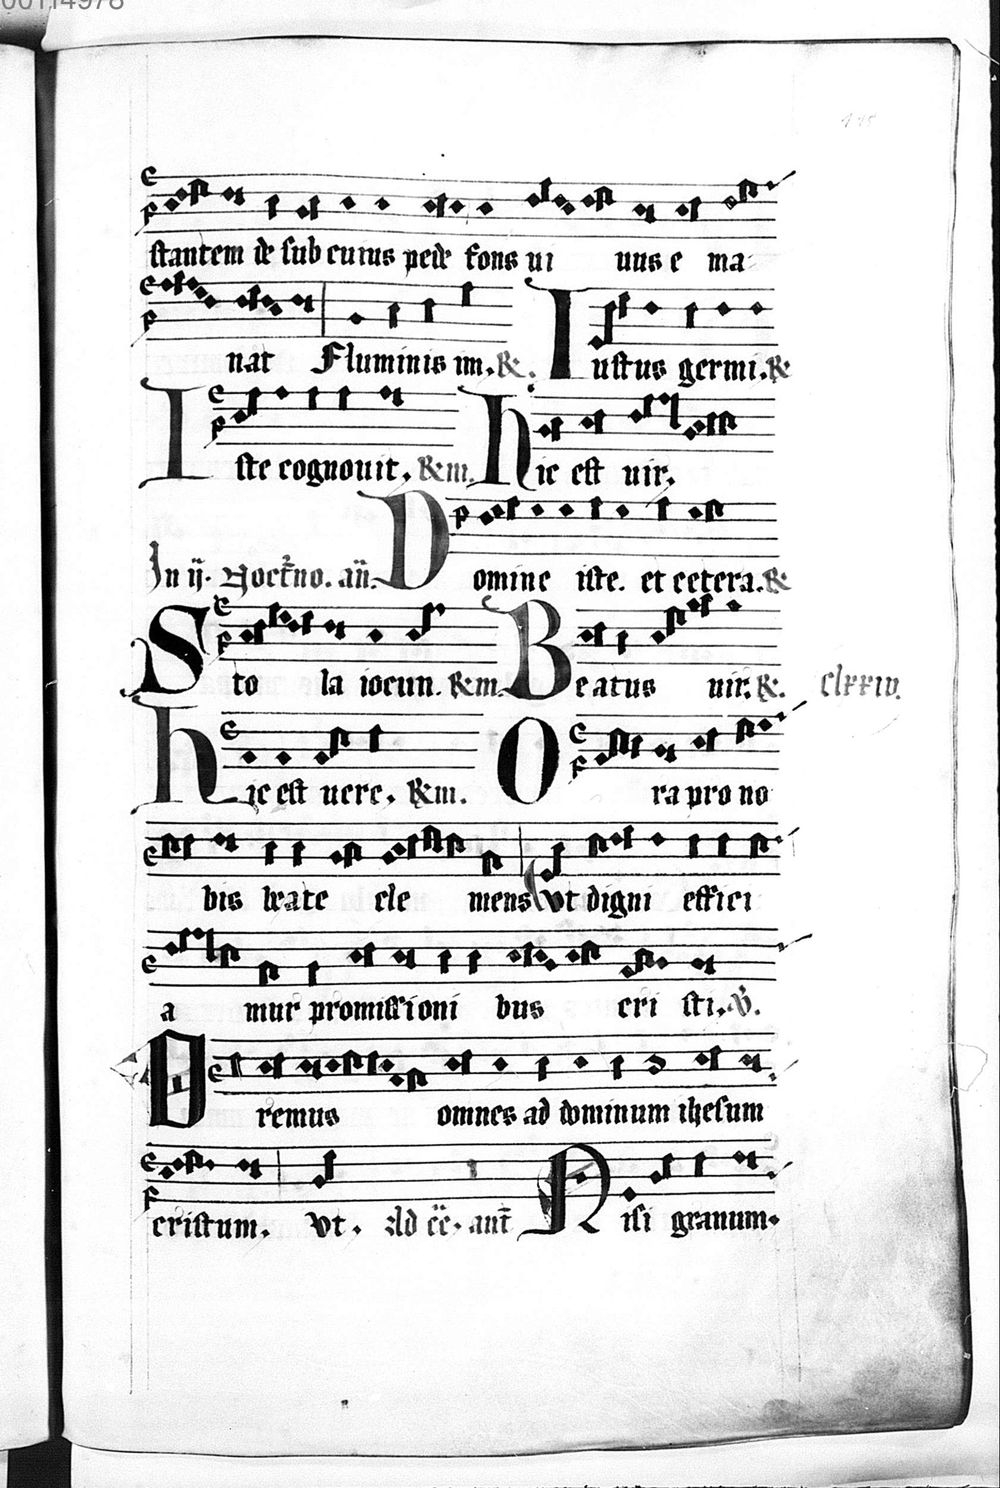 00114978
stantem de sub cuius pede fons ui uus e ma
nat Fluminis im. &. Iustus germi. &
Iste cognouit. & m. Hic est uir.
In ij. Noct̄no. añ. Domine iste. et cetera. &
Stola iocun. & m. Beatus uir. &. clxxiv.
Hic est uere. & m. Ora pro no
bis beate cle mens vt digni effici
a mur promissioni bus cri sti. V̄.
Oremus omnes ad dominum ihesum
cristum. vt. Ad cc̄. ant̄ Nisi granum.